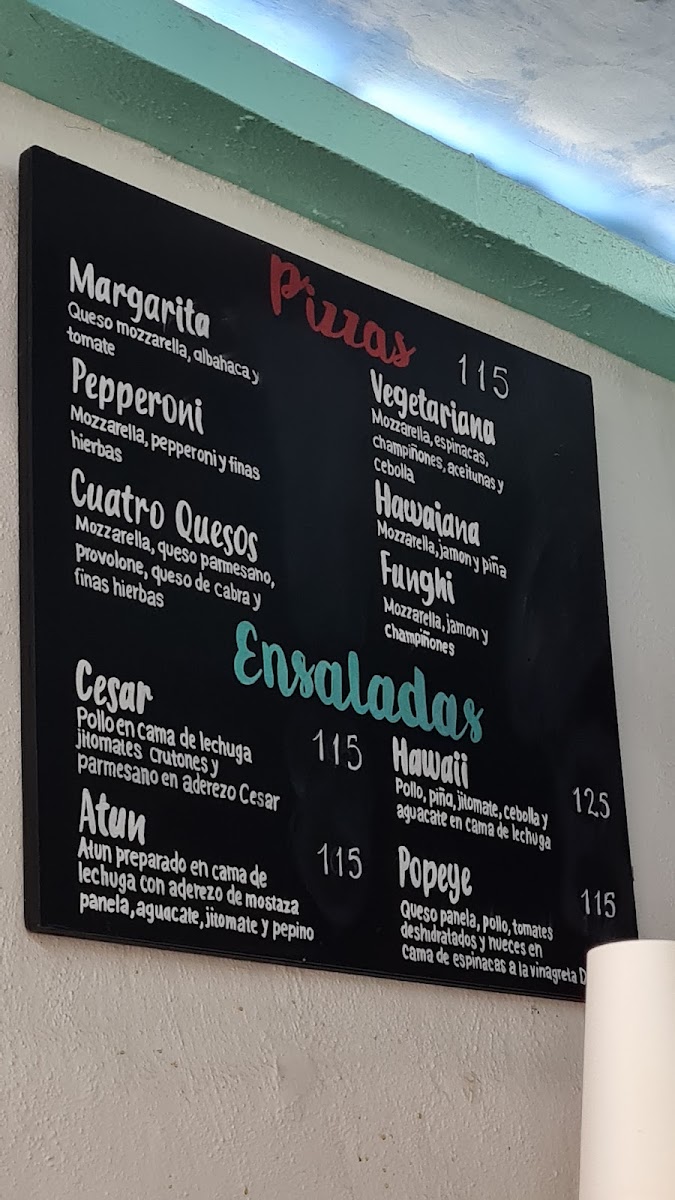 Pizzas 115
Margarita
Queso mozzarella, albahaca y
tomate
Pepperoni
Mozzarella, pepperoni y finas
hierbas
Cuatro Quesos
Mozzarella, queso parmesano,
Provolone, queso de cabra y
finas hierbas
Vegetariana
Mozzarella, espinacas,
champiñones, aceitunas y
cebolla
Hawaiana
Mozzarella, jamon y piña
Funghi
Mozzarella, jamon y
champiñones
Ensaladas
Cesar 115
Pollo en cama de lechuga
jitomates crutones y
parmesano en aderezo Cesar
Atun 115
Atun preparado en cama de
lechuga con aderezo de mostaza
panela, aguacate, jitomate y pepino
Hawaii 125
Pollo, piña, jitomate, cebolla y
aguacate en cama de lechuga
Popeye 115
Queso panela, pollo, tomates
deshidratados y nueces en
cama de espinacas a la vinagreta